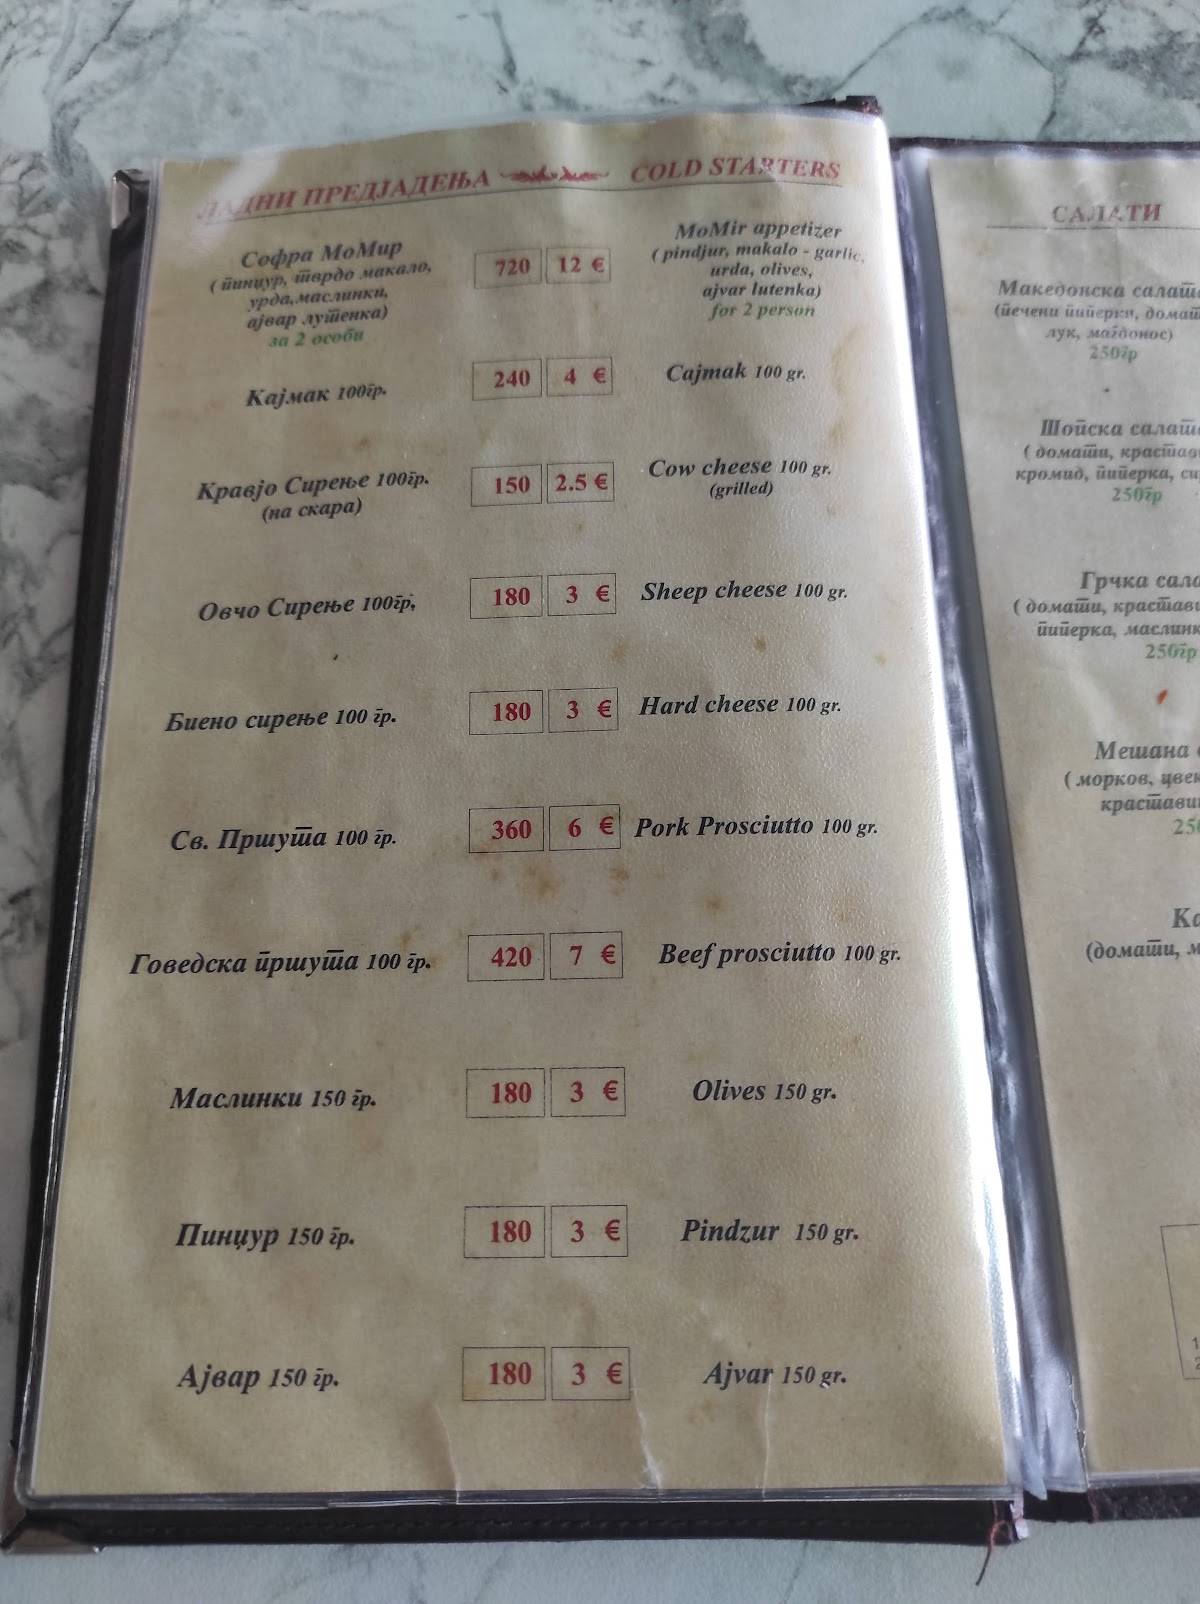 ЛАДНИ ПРЕДЈАДЕЊА COLD STARTERS
Софра МоМир
( пинџур, тврдо макало,
урда,маслинки,
ајвар лутенка)
за 2 особи
720 12 €
MoMir appetizer
( pindjur, makalo - garlic,
urda, olives,
ajvar lutenka)
for 2 person
Кајмак 100гр. 240 4 € Cajmak 100 gr.
Кравјо Сирење 100гр. 150 2.5 € Cow cheese 100 gr.
(на скара) (grilled)
Овчо Сирење 100гр, 180 3 € Sheep cheese 100 gr.
Биено сирење 100 гр. 180 3 € Hard cheese 100 gr.
Св. Пршута 100 гр. 360 6 € Pork Prosciutto 100 gr.
Говедска пршута 100 гр. 420 7 € Beef prosciutto 100 gr.
Маслинки 150 гр. 180 3 € Olives 150 gr.
Пинџур 150 гр. 180 3 € Pindzur 150 gr.
Ајвар 150 гр. 180 3 € Ajvar 150 gr.
САЛАТИ
Македонска
(печени пиперки,
лук, магдонос)
250гр
Шопска
( домати,
кромид, пиперка,
250гр
Грчка
( домати,
пиперка,
250гр
Мешана
( морков,
(домати,